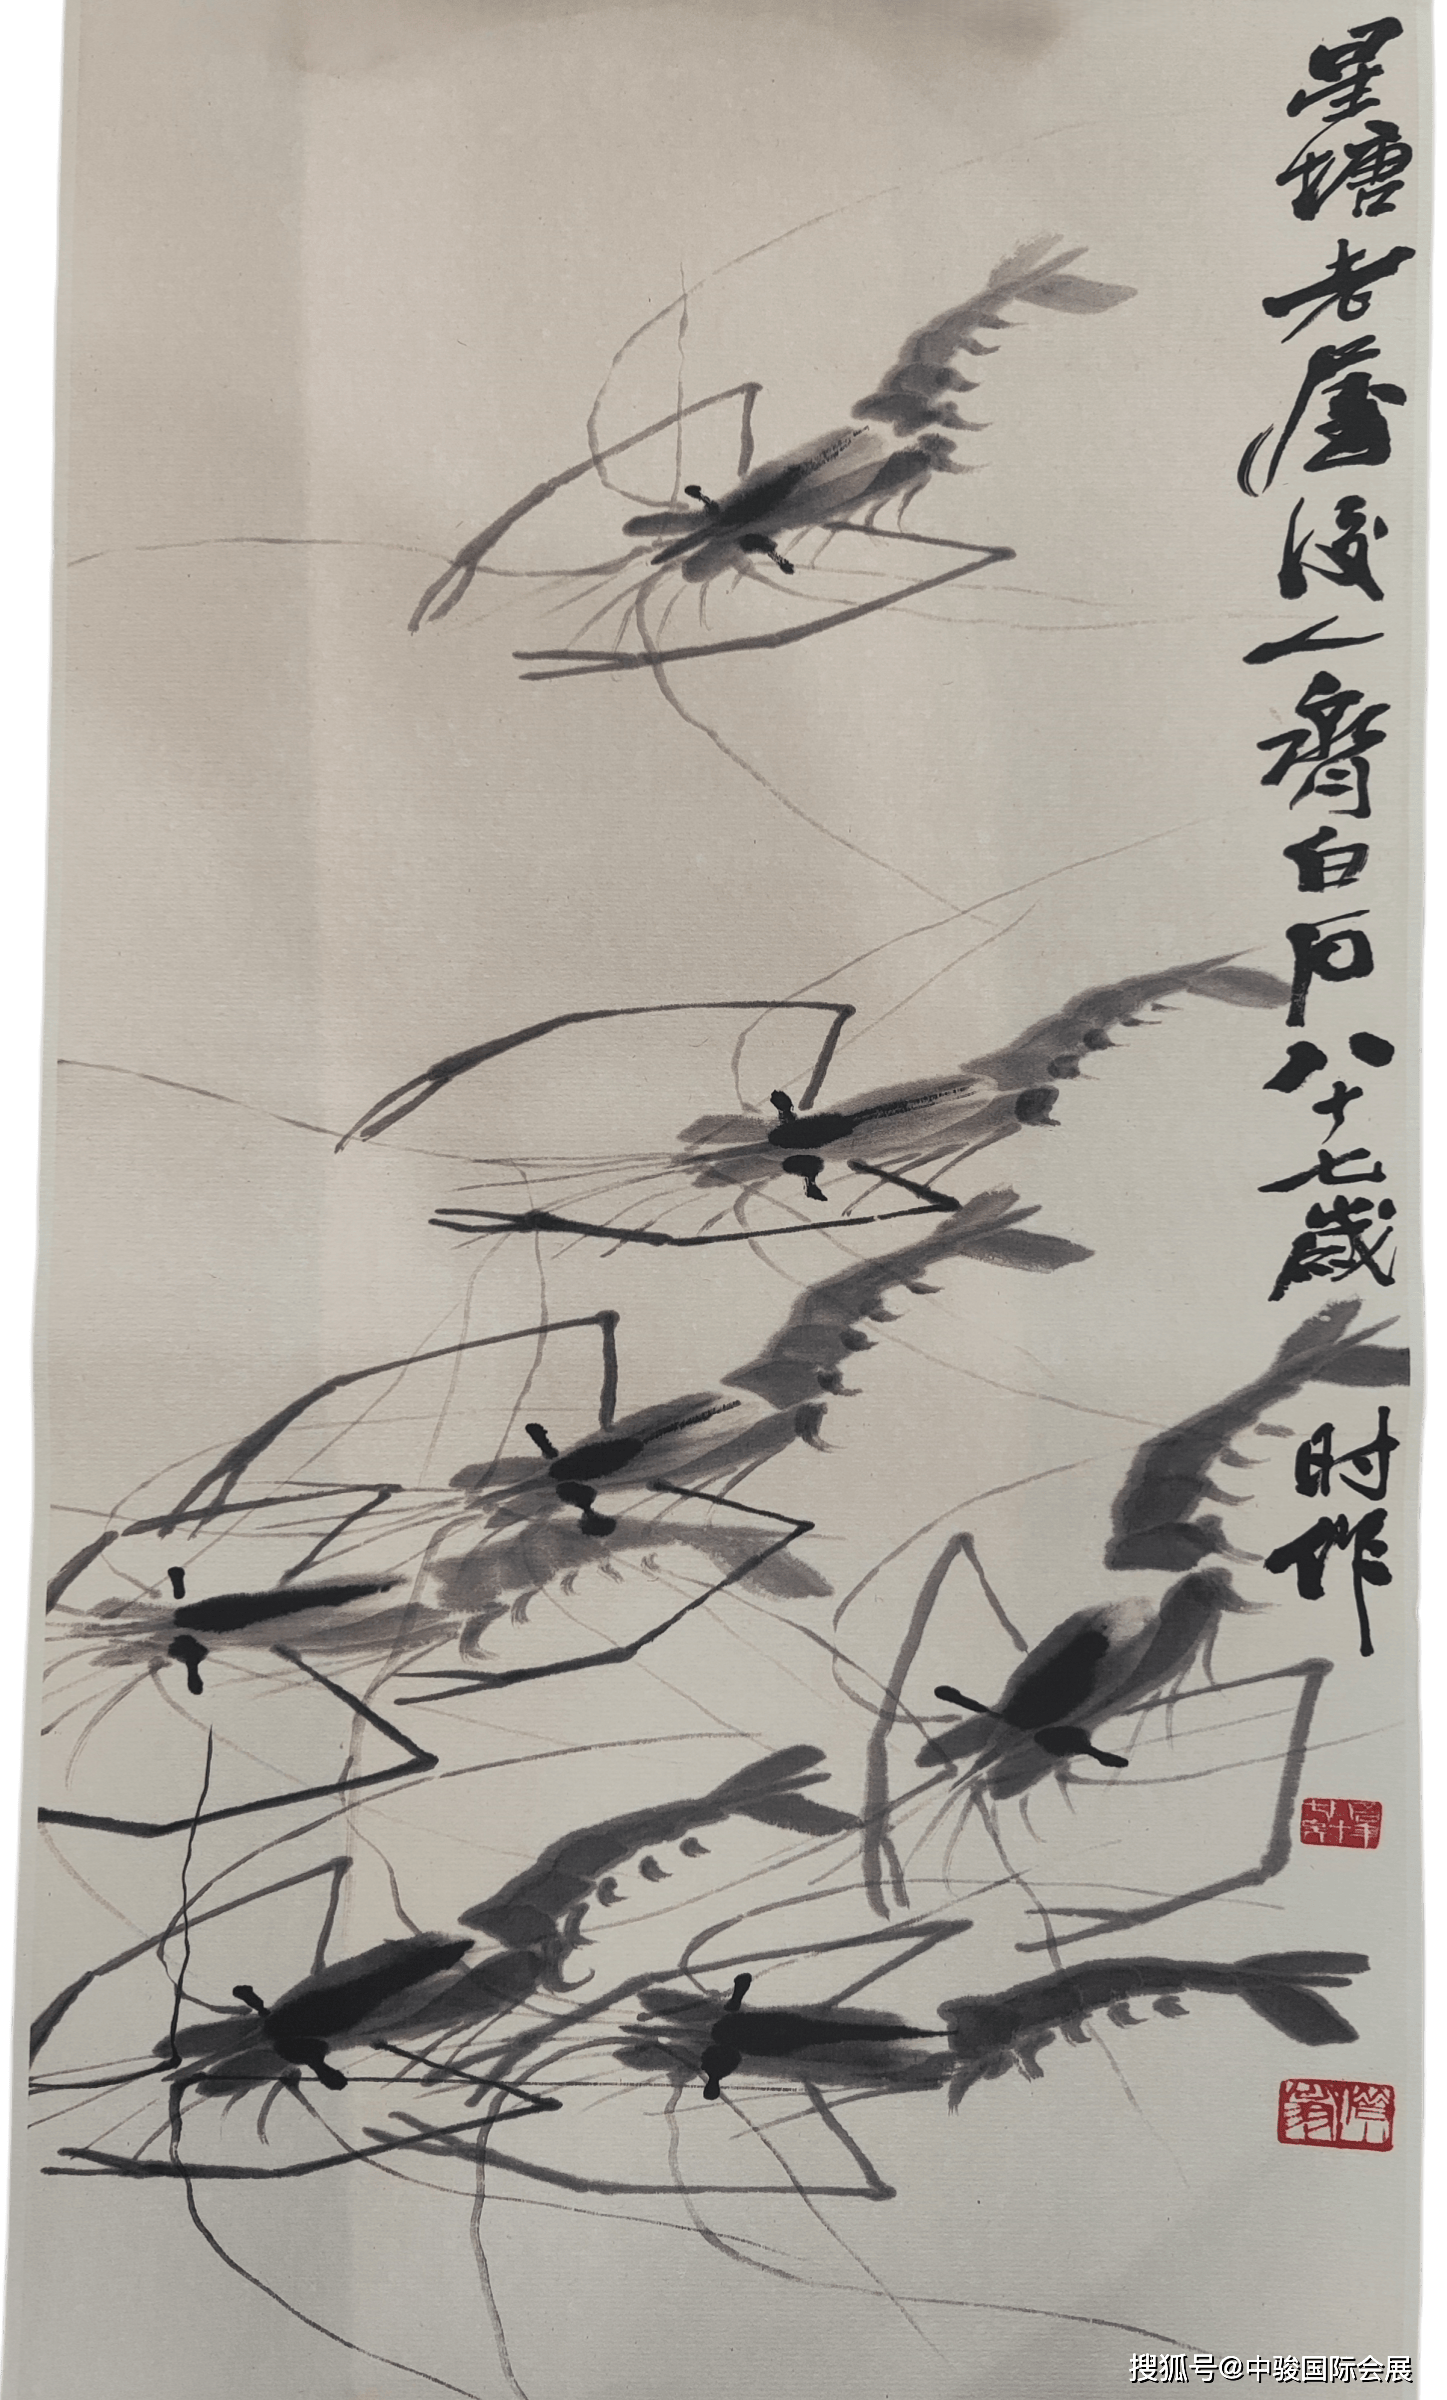 星塘老屋後人齊白石八十七歲时作
吾年八十七矣
搜狐号@中骏国际会展